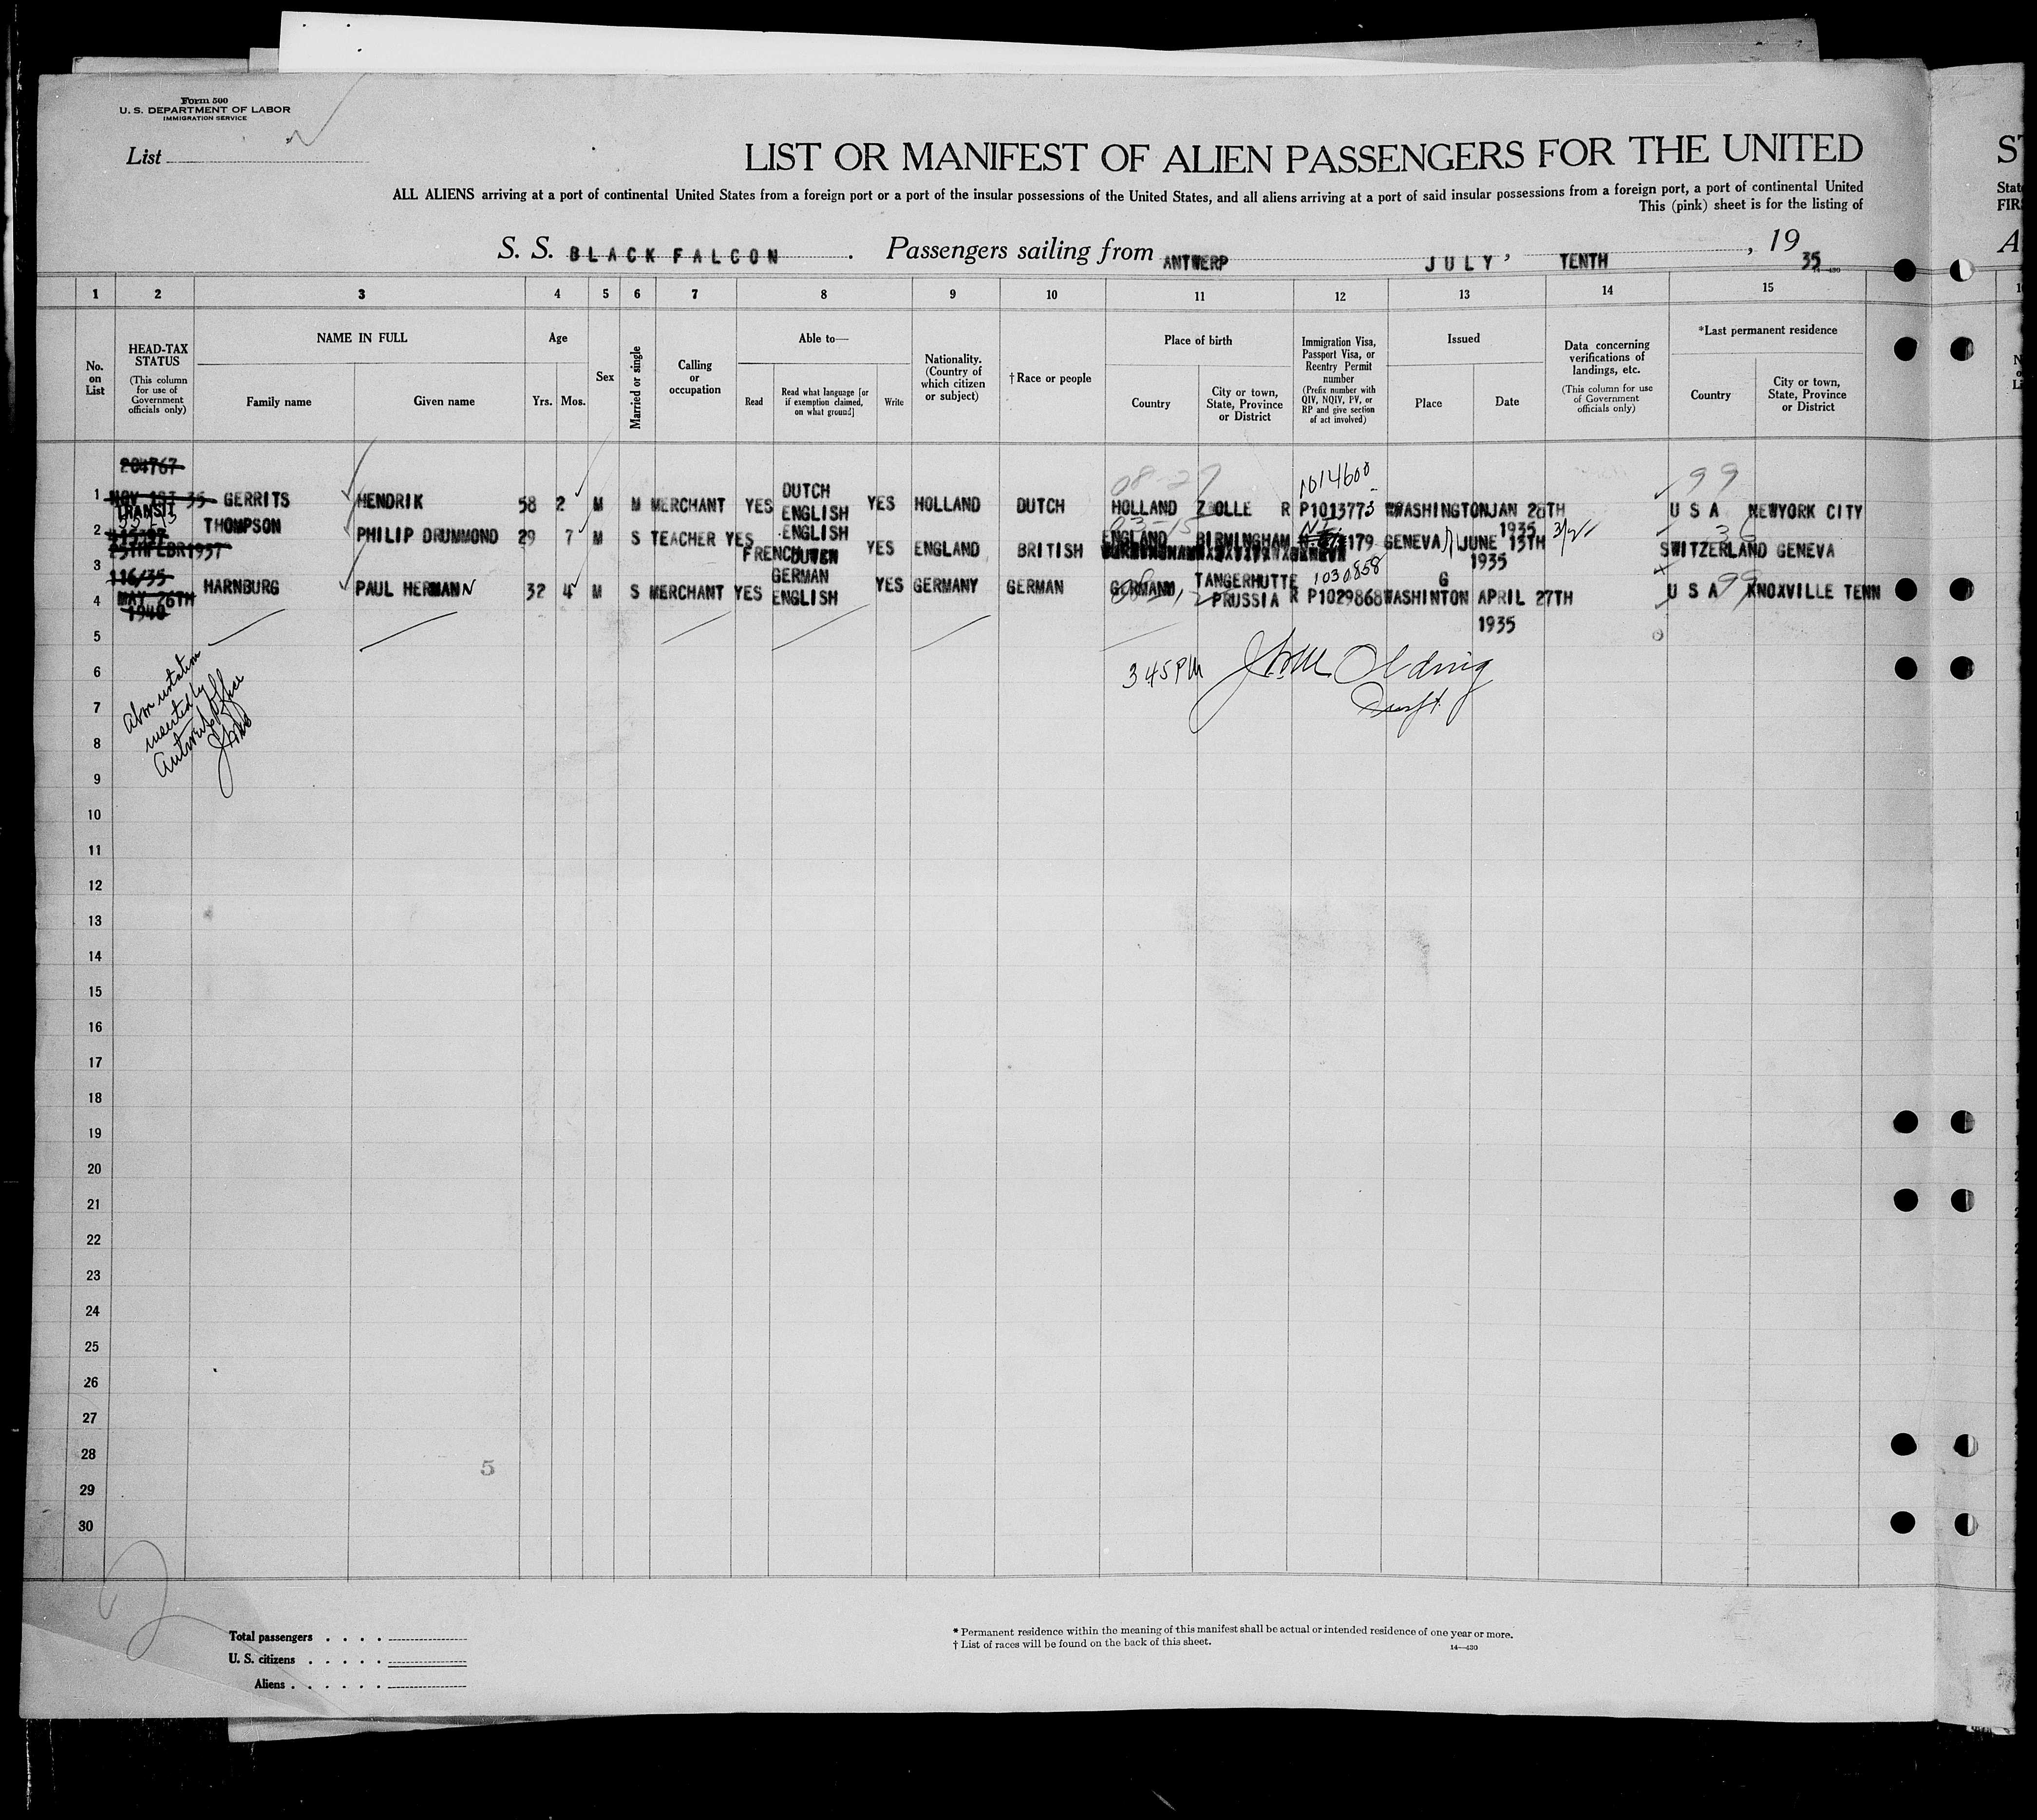 Form 500
U. S. DEPARTMENT OF LABOR
IMMIGRATION SERVICE
List
LIST OR MANIFEST OF ALIEN PASSENGERS FOR THE UNITED
ST
ALL ALIENS arriving at a port of continental United States from a foreign port or a port of the insular possessions of the United States, and all aliens arriving at a port of said insular possessions from a foreign port, a port of continental United
State
This (pink) sheet is for the listing of
FIRS
S. S. BLACK FALCON. Passengers sailing from ANTWERP JULY, TENTH, 1935
14—430
1 2 3 4 5 6 7 8 9 10 11 12 13 14 15
No. on List
HEAD-TAX STATUS
(This column for use of Government officials only)
NAME IN FULL
Family name
Given name
Age
Yrs. Mos.
Sex
Married or single
Calling or occupation
Able to—
Read
Read what language [or if exemption claimed, on what ground]
Write
Nationality. (Country of which citizen or subject)
†Race or people
Place of birth
Country
City or town, State, Province or District
Immigration Visa, Passport Visa, or Reentry Permit number
(Prefix number with QIV, NQIV, PV, or RP and give section of act involved)
Issued
Place
Date
Data concerning verifications of landings, etc.
(This column for use of Government officials only)
*Last permanent residence
Country
City or town, State, Province or District
204767
08-27
1014600
99
1 NOV 1ST 35 GERRITS HENDRIK 58 2 M M MERCHANT YES DUTCH ENGLISH YES HOLLAND DUTCH HOLLAND ZWOLLE R P1013773 WASHINGTON JAN 28TH 1935 U S A NEWYORK CITY
TRANSIT
03-15
2 THOMPSON PHILIP DRUMMOND 29 7 M S TEACHER YES ENGLISH FRENCH YES ENGLAND BRITISH ENGLAND BIRMINGHAM 179 GENEVA JUNE 13TH 1935 SWITZERLAND GENEVA
25TH FEBR 1937
3
116/35
1030858
4 MAY 26TH 1940 HARNBURG PAUL HERMANN 32 4 M S MERCHANT YES GERMAN ENGLISH YES GERMANY GERMAN GERMANY TANGERHUTTE PRUSSIA R P1029868 WASHINTON G APRIL 27TH 1935 U S A 99 KNOXVILLE TENN
5
6
3 45 PM
7
Abm notation
inserted by
Antwerp Office
8
9
10
11
12
13
14
15
16
17
18
19
20
21
22
23
24
25
26
27
28
5
29
30
Total passengers . . . .
U. S. citizens . . . . .
Aliens . . . . . .
* Permanent residence within the meaning of this manifest shall be actual or intended residence of one year or more.
† List of races will be found on the back of this sheet.
14—430